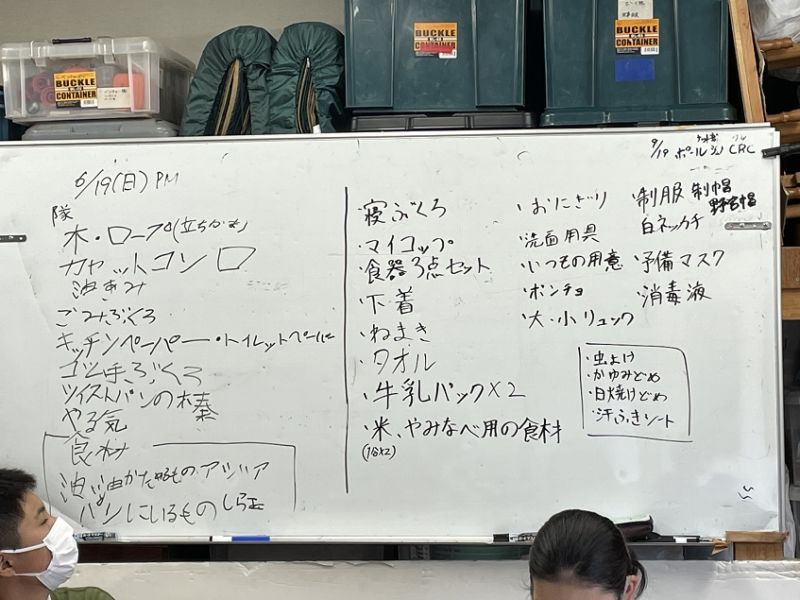 BUCKLE
CONTAINER
BUCKLE
CONTAINER
BUCKLE
CONTAINER
9/19 ボール CRC
6/19(日)PM
隊
木・ロープ(立ちかま)
カセットコンロ
ごみぶくろ
キッチンペーパー・トイレットペーパー
ゴム手ぶくろ
ツイストパンの棒
やる気
食材
油 油かためるもの
パンにいるもの
・寝ぶくろ
・マイコップ
・食器3点セット
・下着
・ねまき
・タオル
・牛乳パック×2
・米、やみなべ用の食材
(1合×2)
・おにぎり
・洗面用具
・いつもの用意
・ポンチョ
・大・小リュック
・制服 制帽
野営帽
白ネッカチ
・予備マスク
・消毒液
・虫よけ
・かゆみどめ
・日焼けどめ
・汗ふきシート